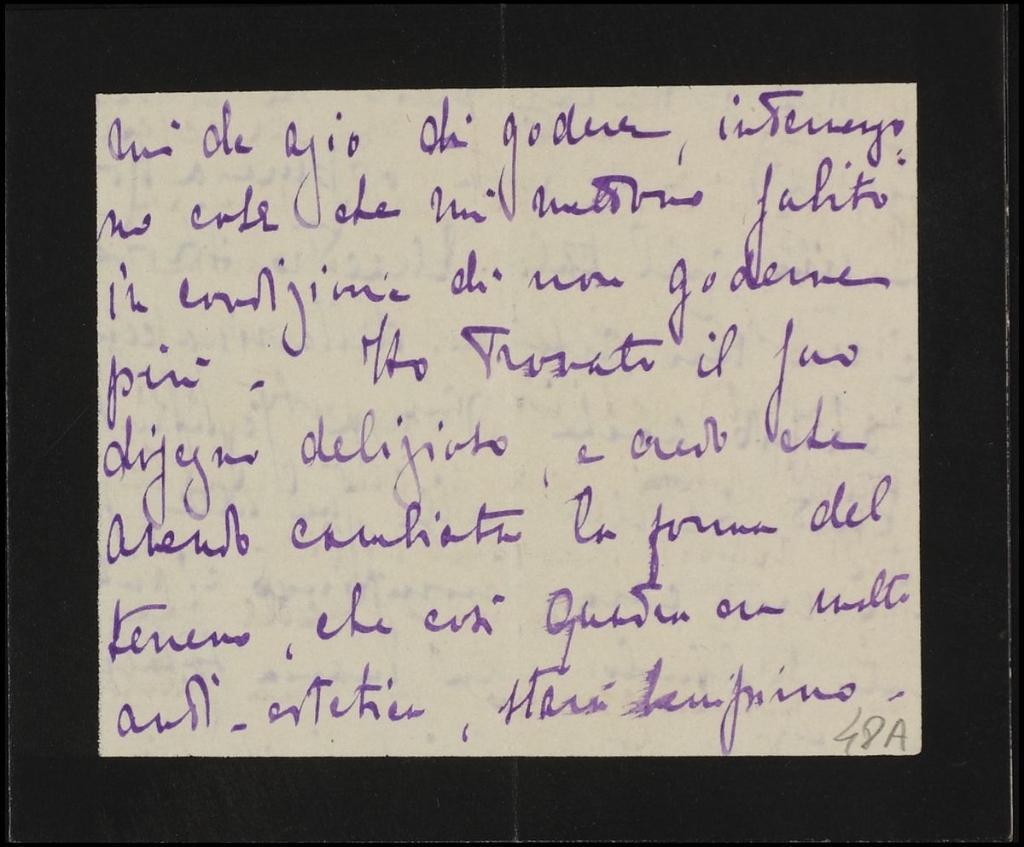 mi da agio di godere, intervengo-
no cose che mi mettono subito
in condizioni di non goderne
più - Ho trovato il suo
disegno delizioso, e credo che
avendo cambiata la forma del
terreno, che così quadra era molto
anti-estetica, starà benissimo -
48A